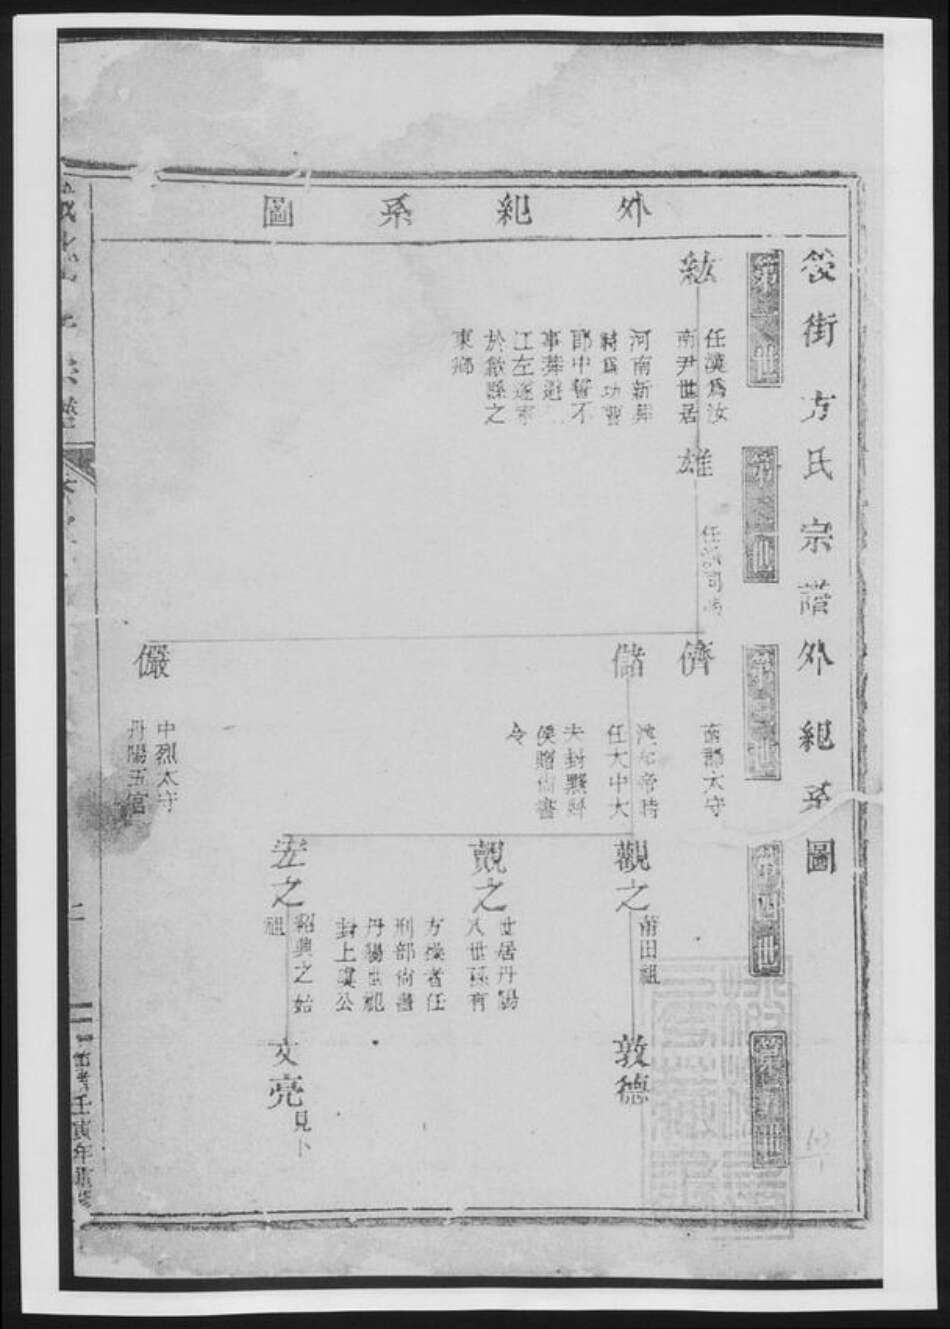 外紀系圖
後街方氏宗譜外紀系圖
第一世
第二世
第三世
第四世
第五世
紘
任漢爲汝
南尹世居
河南新莽
時爲功曹
郎中誓不
事莽避
江左遂家
於歙縣之
東鄉
雄
任
司馬
儕
南郡太守
儲
漢和帝時
任大中大
夫封黟縣
侯贈尚書
令
儼
中烈太守
丹陽五官
觀之
莆田祖
覿之
世居丹陽
八世孫有
方操者任
刑部尚書
丹陽世祀
封上虞公
宏之
紹興之始
祖
敦德
文亮
見卜
宗譜
壬寅年重修